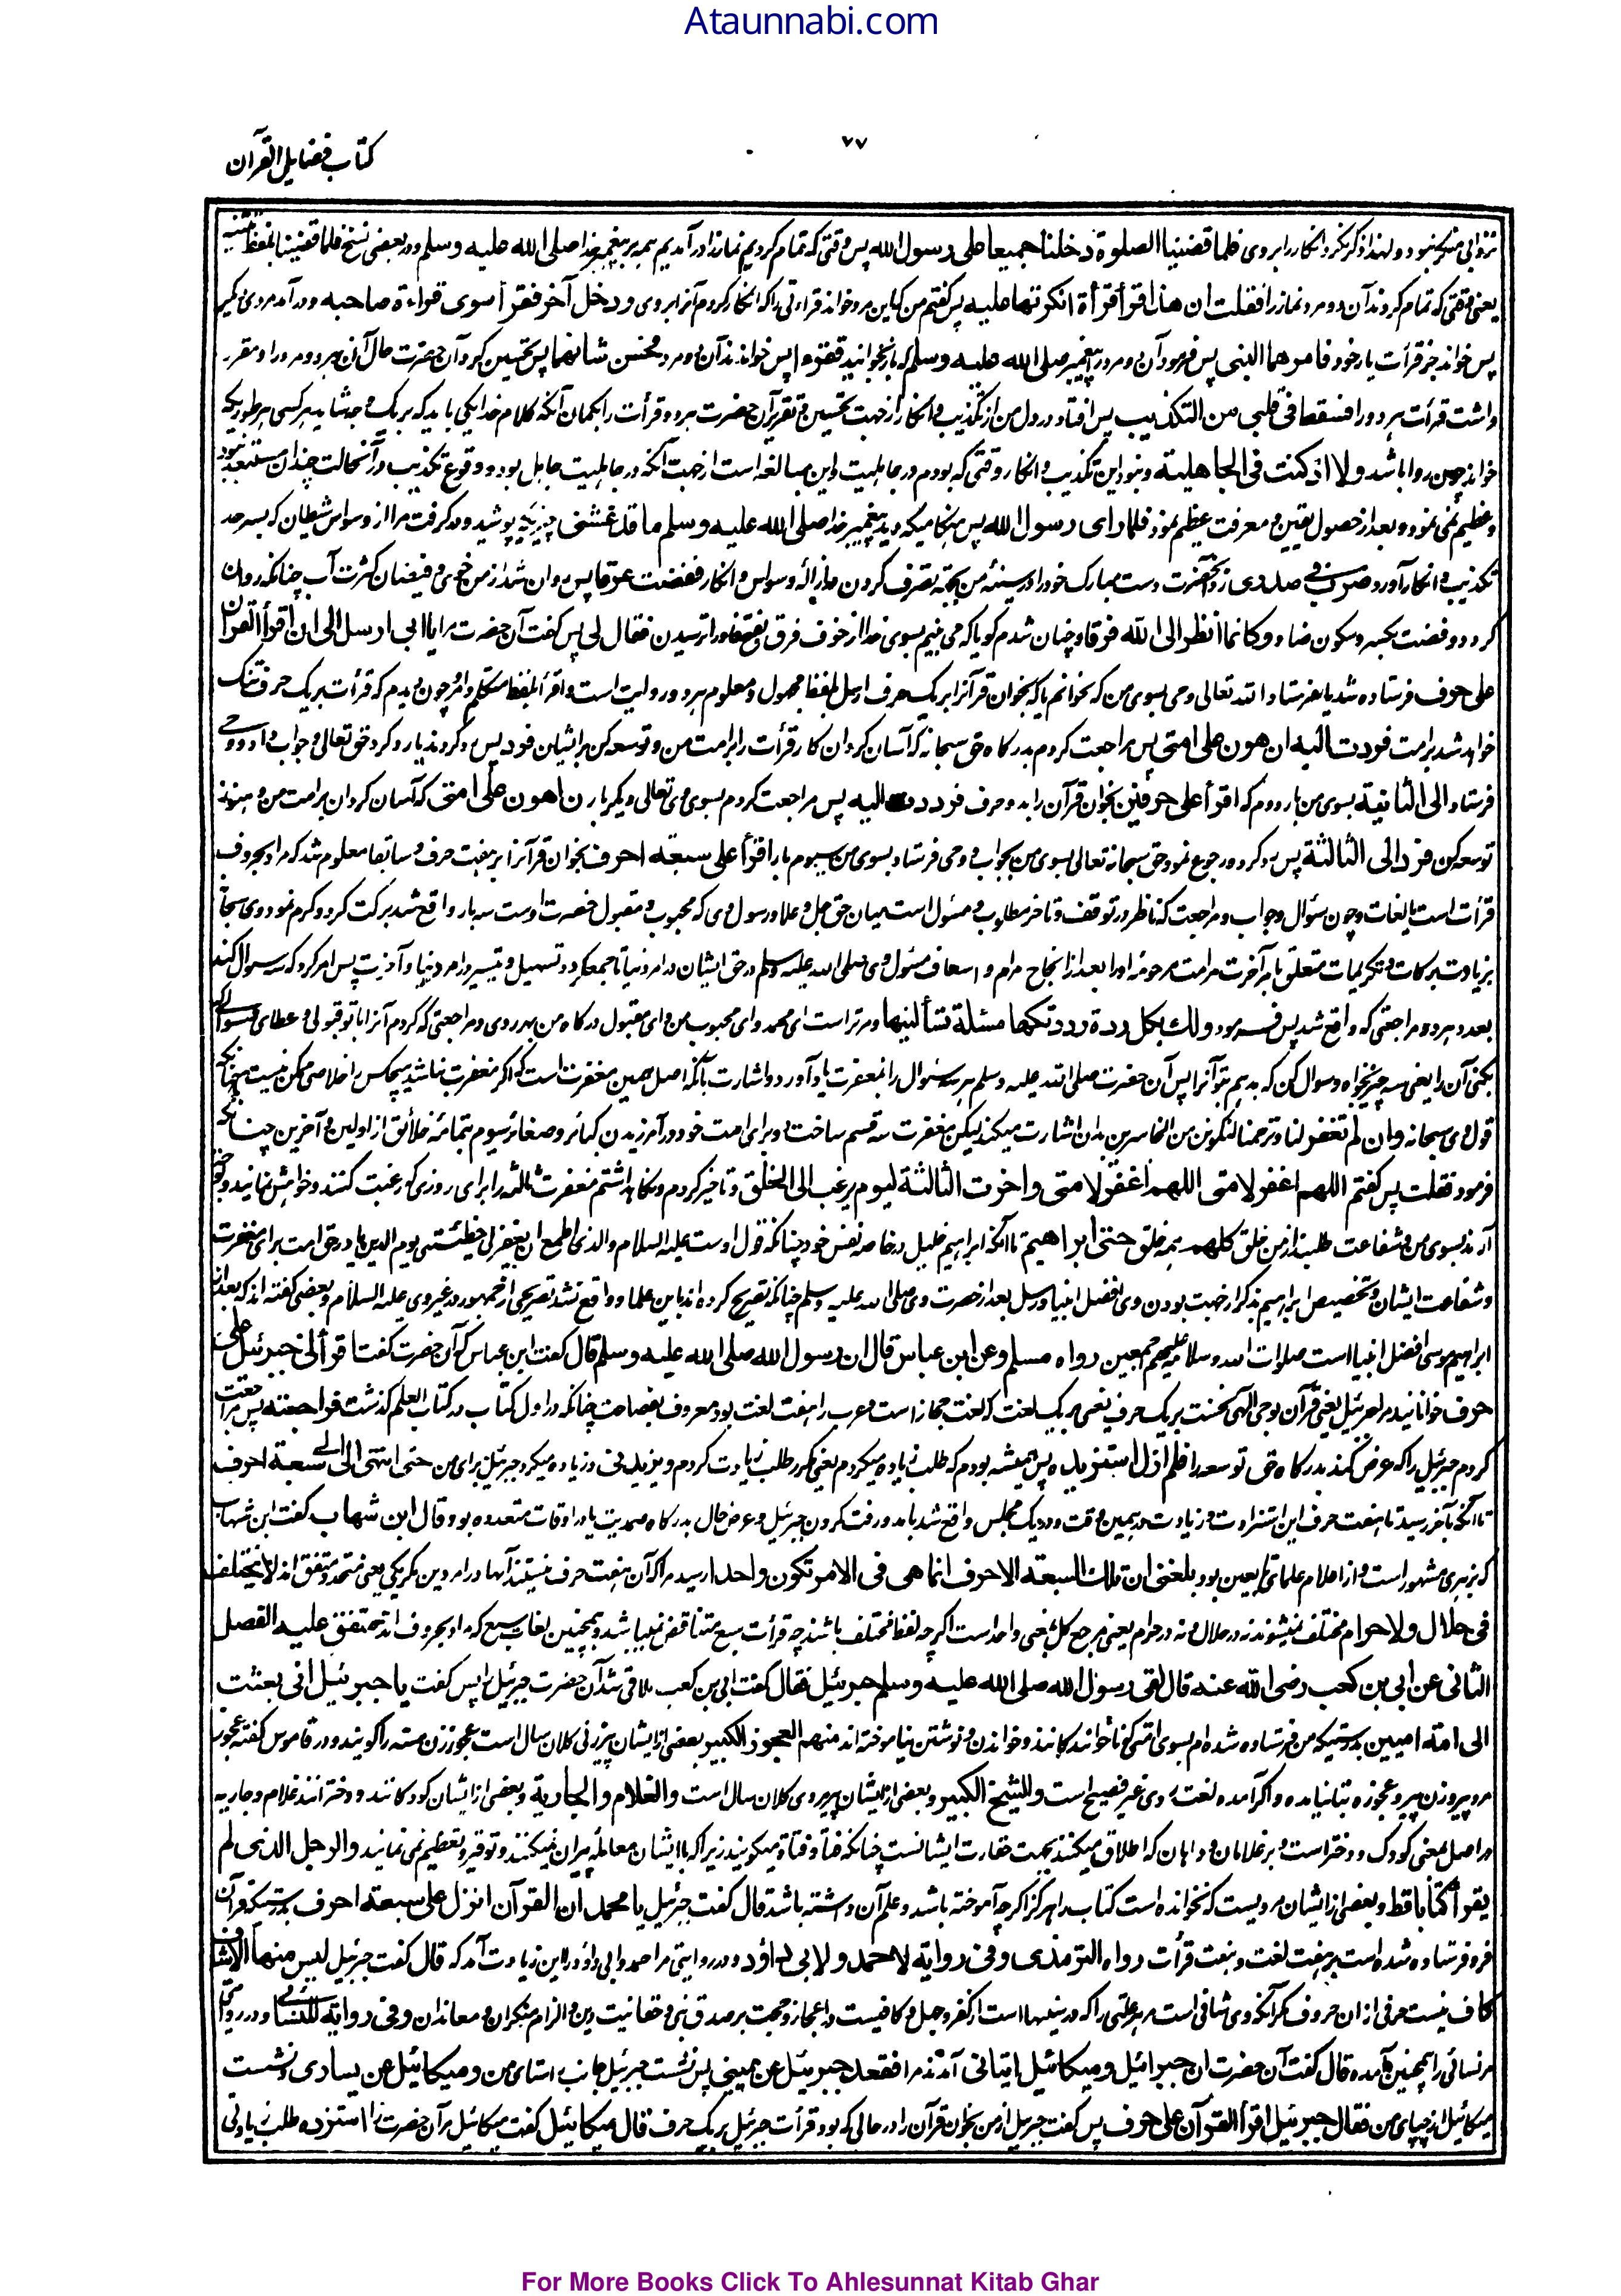 Ataunnabi.com
کتاب فضایل القرآن
۷۷
نزد ابی منکر نبود و لهذا ذکر نکرد انکار را بروی فلما قضینا الصلوة دخلنا جمیعا علی رسول الله پس وقتی که تمام کردیم نماز را در آمدیم همه بر پیغمبر خدا صلی الله علیه وسلم و در بعضی نسخ فلما قضینا بلفظ تثنیه
یعنی وقتی که تمام کردند آن دو مرد نماز را فقلت ان هذا قرأ قرأة انکرتها علیه پس گفتم من که این مرد خواند قراءتی را که انکار کردم آنرا بروی و دخل آخر فقرأ سوی قراءة صاحبه و در آمد مردی دیگر
پس خواند جز قرأت یار خود فامرهما النبی پس فرمود آن دو مرد را پیغمبر صلی الله علیه وسلم که بخوانید فقرءا پس خواندند آن دو مرد فحسن شانهما پس تحسین کرد آن حضرت حال آن هر دو مرد را و مقرر
داشت قرأت هر دو را فسقط فی قلبی من التکذیب پس افتاد در دل من از تکذیب و انکار از جهت تحسین و تقریر آن حضرت هر دو قرأت را بگمان آنکه کلام خدا یکی باید که بر یک وجه شاید هر کسی هر طوریکه
خواند چون روا باشد ولا اذ کنت فی الجاهلیة و نبود این تکذیب و انکار وقتی که بودم در جاهلیت و این مبالغه است از جهت آنکه در جاهلیت جاهل بود و وقوع تکذیب در آنحالت چندان مستبعد نبود
و عظیم نمی نمود و بعد از حصول یقین و معرفت عظیم نمود فلما رای رسول الله پس هنگامیکه دید پیغمبر خدا صلی الله علیه وسلم ما قد غشنی چیزیکه پوشید و در گرفت مرا از وسواس شیطان که بسرحد
تکذیب و انکار آورد ضرب فی صدری زد آنحضرت دست مبارک خود را در سینه من بجهة تصرف کردن در ازاله وسواس و انکار ففضت عرقا پس روان شدم از من خوی و فیضان کثرت آب چنانکه روان
گردد و فضت بکسر و سکون ضاد و کانما انظر الی الله فرقا و چنان شدم گویا که می بینم بسوی خدا از خوف فرق بفتح فا و را ترسیدن فقال لی پس گفت آن حضرت مرا یا ابی ارسل الی ان اقرأ القرآن
علی حرف فرستاده شد یا فرستاد الله تعالی وحی بسوی من که بخوانم یا که بخوان قرآنرا بر یک حرف ارسل بلفظ مجهول و معلوم هر دو روایت است و اقرأ بلفظ متکلم و امر چون دیدم که قرأت بر یک حرف تنگ
خواهد شد بر امت فرددت الیه ان هون علی امتی پس مراجعت کردم بدرگاه حق سبحانه که آسان گردان کار قرأت را بر امت من و توسعه کن برایشان فرد پس رد کرد حق تعالی و جواب داد و وحی
فرستاد الی الثانیة بسوی من بار دوم که اقرأ علی حرفین بخوان قرآن را بدو حرف فرددت الیه پس مراجعت کردم بسوی وی تعالی دیگر بار ان هون علی امتی که آسان گردان بر امت من و هنوز
توسعه کن فرد الی الثالثة پس رد کرد و رجوع نمود حق سبحانه تعالی بسوی من بجواب و وحی فرستاد بسوی من سیوم بار اقرأ علی سبعة احرف بخوان قرآنرا بر هفت حرف و سابقا معلوم شد که مراد بحروف
قرأت است یا لغات و چون سؤال و جواب و مراجعت که ناظر در توقف و تاخر مطلوب و مسئول است میان حق جل و علا و رسول وی که محبوب و مقبول حضرت اوست سه بار واقع شد برکت کرد و کرم نمود وی سبحانه
بزیادت برکات و تکریمات متعلق بامر آخرت مر امت مرحومه او را بعد از انجاح مرام و اسعاف مسئول وی صلی الله علیه وسلم در حق ایشان در امر دنیا تا جمع گردد تسهیل و تیسیر در امر دنیا و آخرت پس امر کرد که سه سوال کند
بعدد هر رد و مراجعتی که واقع شد پس فرمود ولك بكل ردة رددتکها مسئلة تسألنیها و مر تراست ای محمد و ای محبوب من و ای مقبول درگاه من بهر ردی و مراجعتی که کردم آنرا با تو قبولی و عطای سوالی که
بکنی آن را یعنی سه چیز بخواه و سوال کن که بدهم بتو آنرا پس آن حضرت صلی الله علیه وسلم هر سه سوال را بمغفرت یاد آورد و اشارت بآنکه اصل همین مغفرت است که اگر مغفرت نباشد هیچکس را خلاصی ممکن نیست چنانکه
قول وی سبحانه و ان لم تغفر لنا و ترحمنا لنکونن من الخاسرین بدان اشارت میکند لیکن مغفرت سه قسم ساخت دو برای امت خود در آمرزیدن کبائر و صغائر سیوم بتمامئه خلائق از اولین و آخرین چنانکه
فرمود فقلت پس گفتم اللهم اغفر لامتی اللهم اغفر لامتی و اخرت الثالثة لیوم یرغب الی الخلق و تاخیر کردم و نگاهداشتم مغفرت ثالثه را برای روزی که رغبت کنند و خواهش نمایند
آرند بسوی من و شفاعت طلبند از من خلق کلهم همه خلق حتی ابراهیم تا آنکه ابراهیم خلیل در خاصه نفس خود چنانکه قول اوست علیه السلام والذی اطمع ان یغفر لی خطیئتی یوم الدین یا در حق امت برای مغفرت
و شفاعت ایشان و تخصیص ابراهیم بذکر از جهت بودن وی افضل انبیا و رسل بعد از حضرت وی صلی الله علیه وسلم چنانکه تصریح کرده اند باین علما و واقع نشد تصریحی از جمهور در غیر وی علیه السلام و بعضی گفته اند که بعد از
ابراهیم موسی افضل انبیا است صلوات الله و سلامه علیهم اجمعین رواه مسلم و عن ابن عباس قال ان رسول الله صلی الله علیه وسلم قال گفت ابن عباس که آن حضرت گفت اقرأنی جبرئیل علی
حرف خوانانید مرا جبرئیل یعنی قرآن بوحی الهی نخست بر یک حرف یعنی بر یک لغت که لغت حجاز است و عرب را هفت لغت بود معروف بفصاحت چنانکه در اول کتاب در کتاب العلم گذشت فراجعته پس مراجعت
کردم جبرئیل را که عرض کند بدرگاه حق توسعه را فلم ازل استزیده پس همیشه بودم که طلب زیاده میکردم یعنی مکرر طلب زیادت کردم و یزیدنی و زیاده میکرد جبرئیل برای من حتی انتهی الی سبعة احرف
تا آنکه بآخر رسید تا هفت حرف این استزادت و زیادت در همین وقت و در یک مجلس واقع شد بآمد و رفت کردن جبرئیل و عرض حال بدرگاه صمدیت یا در اوقات متعدده بود قال ابن شهاب گفت ابن شهاب
که زهری مشهور است و از اعلام علمای تابعین بود بلغنی ان تلك السبعة الاحرف انما هی فی الامر تکون واحدا رسید مرا که آن هفت حرف نیستند آنها در امر دین مگر یکی یعنی متحد و متفق اند لا یختلف
فی حلال ولا حرام مختلف نمیشوند نه در حلال و نه در حرام یعنی مرجع کل بمعنی واحد است اگر چه لفظ مختلف باشند چه قرأت سبع متناقض نمیباشند و همچنین لغات سبع که مراد بحروف اند متفق علیه الفصل
الثانی عن ابی بن کعب رضی الله عنه قال لقی رسول الله صلی الله علیه وسلم جبرئیل فقال گفت ابی بن کعب ملاقی شد آن حضرت جبرئیل را پس گفت یا جبرئیل انی بعثت
الی امة امیین بدرستیکه من فرستاده شده ام بسوی امتی که ناخوانندگانند و خواندن و نوشتن نیاموخته اند منهم العجوز الکبیر بعضی از ایشان پیر زنی کلان سال است عجوز زن مسنه را گویند و در قاموس گفته عجوز
مرد پیر و زن پیر و عجوزه بتا نیامده و اگر آمده لغت ردی غیر فصیح است والشیخ الکبیر و بعضی از ایشان پیر مردی کلان سال است والغلام والجاریة و بعضی از ایشان کودکانند و دخترانند غلام و جاریه
در اصل بمعنی کودک و دختر است و بر غلامان و داهان که اطلاق میکنند بجهت حقارت ایشانست چنانکه فتا و فتاة میگویند زیرا که با ایشان معامله پیران نمیکنند و توقیر و تعظیم نمی نمایند والرجل الذی لم
یقرأ کتابا قط و بعضی از ایشان مردیست که نخوانده است کتاب را هرگز اگر چه آموخته باشد و علم آن داشته باشد قال گفت جبرئیل یا محمد ان القرآن انزل علی سبعة احرف بدرستیکه قرآن
فرو فرستاده شده است بر هفت لغت و هفت قرأت رواه الترمذی و فی روایة لاحمد و لابی داؤد و در روایتی مر احمد و ابی داؤد را این زیادت آمد که قال گفت جبرئیل لیس منها الا شاف
کاف نیست حرفی از ان حروف مگر آنکه وی شافی است مر هر علتی را که در سینهها است از کفر و جهل و کافیست در اعجاز و حجت بر صدق نبی و حقانیت دین و الزام منکران و معاندان و فی روایة للنسائی و در روایتی
مر نسائی را همچنین آمده قال گفت آن حضرت ان جبرائیل و میکائیل اتیانی آمدند مرا فقعد جبرئیل عن یمینی پس نشست جبرئیل جانب راستای من و میکائیل عن یساری و نشست
میکائیل از چپای من فقال جبرئیل اقرأ القرآن علی حرف پس گفت جبرئیل از من بخوان قرآن را در حالی که بود قرأت جبرئیل بر یک حرف قال میکائیل گفت میکائیل مر آن حضرت را استزده طلب زیادتی
For More Books Click To Ahlesunnat Kitab Ghar